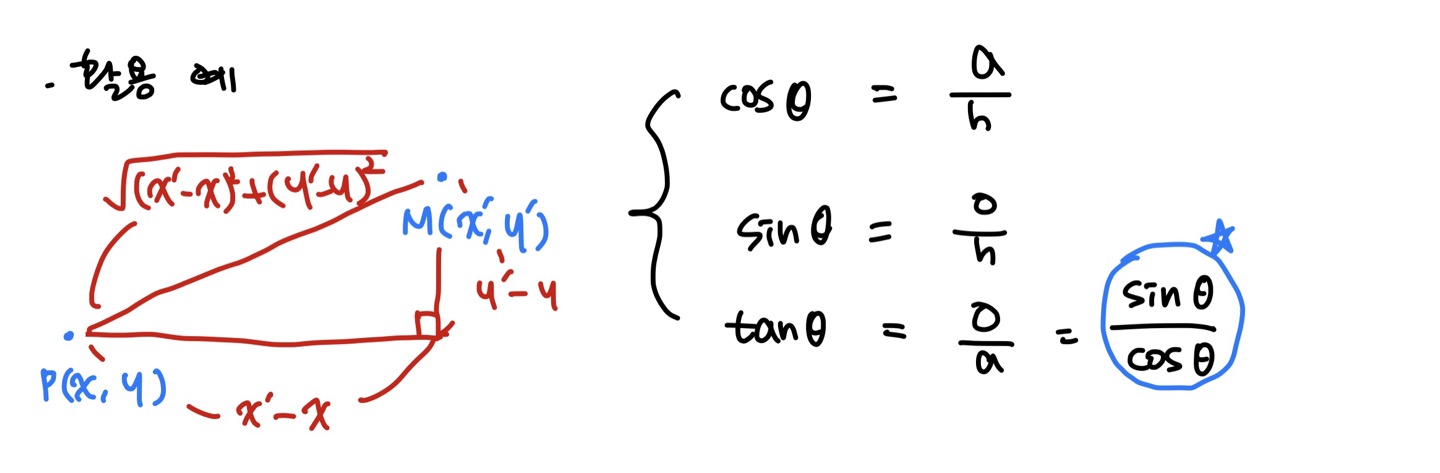 . 활용 예
√((x'-x)²+(y'-y)²)
M(x', y')
y'-y
P(x, y)
x'-x
cosθ = a/h
sinθ = o/h
tanθ = o/a = sinθ/cosθ